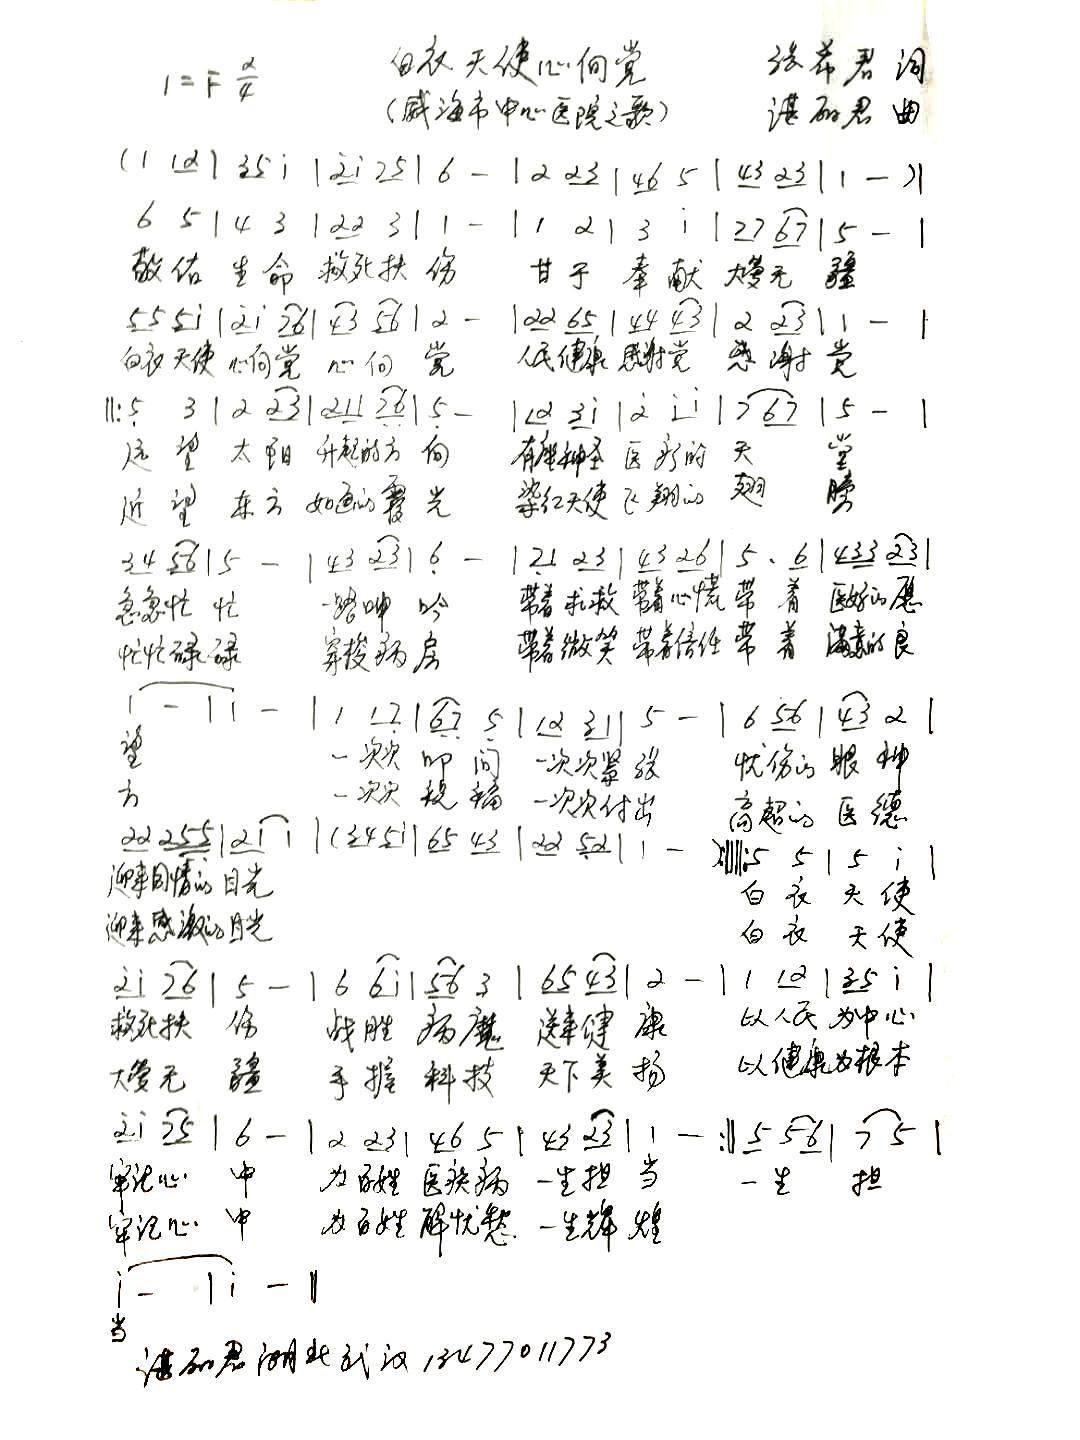 1=F 2/4 白衣天使心向党 张希君 词
(威海市中心医院之歌) 谌丽君 曲
(1 12 | 35 i | 2i 75 | 6 - | 2 23 | 46 5 | 43 23 | 1 - )|
6 5 | 4 3 | 22 3 | 1 - | 1 2 | 3 i | 27 67 | 5 - |
敬佑 生命 救死扶 伤 甘于 奉献 大爱无 疆
55 5i | 2i 76 | 43 56 | 2 - | 22 65 | 44 43 | 2 23 | 1 - |
白衣天使 心向党 心向 党 人民健康 感谢党 感谢 党
‖: 5 3 | 2 23 | 211 76 | 5 - | 12 3i | 2 i i | 7 67 | 5 - |
远望 太阳 升起的方 向 有座神圣 医疗的 天 堂
近望 东方 如画的霞 光 染红天使 飞翔的 翅 膀
34 56 | 5 - | 43 23 | 6 - | 21 23 | 43 26 | 5 . 6 | 433 23 |
急急忙 忙 一路呻 吟 带着求救 带着心慌 带 着 医好的愿
忙忙碌 碌 穿梭病 房 带着微笑 带着信任 带 着 满意的良
i - | i - | 1 17 | 67 5 | 12 31 | 5 - | 6 56 | 43 2 |
望 一次次 叩问 一次次紧 张 忧伤的 眼神
方 一次次 祝福 一次次付 出 高超的 医德
22 255 | 2i i | (345i | 65 43 | 22 52 | 1 - ):‖: 5 5 | 5 i |
迎来同情的 目光 白衣 天使
迎来感激的 目光 白衣 天使
2i 76 | 5 - | 6 6i | 56 3 | 65 43 | 2 - | 1 12 | 35 i |
救死扶 伤 战胜 病魔 送来健 康 以人民 为中心
大爱无 疆 手握 科技 天下美 扬 以健康 为根本
2i 75 | 6 - | 2 23 | 46 5 | 43 23 | 1 - :‖ 5 56 | 7 5 |
牢记心 中 为百姓 医疾病 一生担 当 一生 担
牢记心 中 为百姓 解忧愁 一生辉 煌
i - | i - ‖
当
谌丽君湖北武汉13477011773